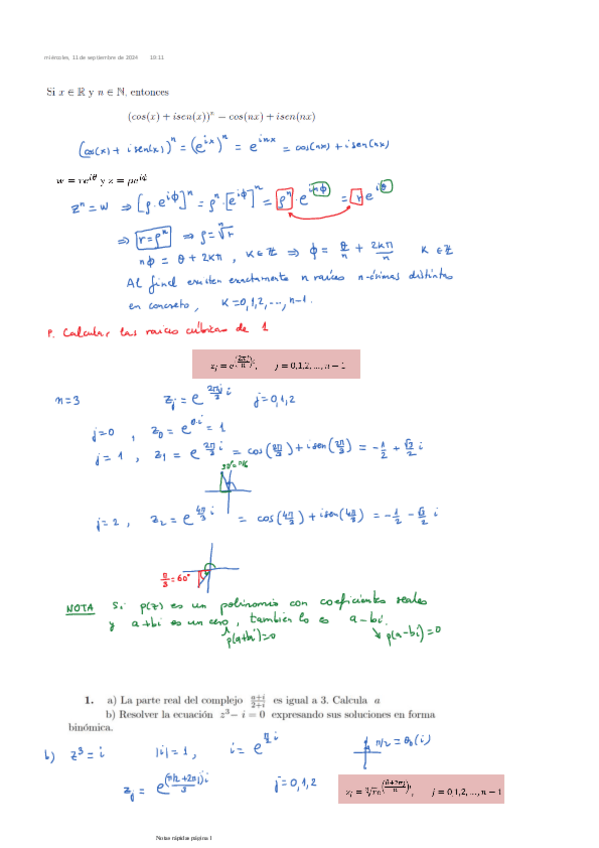 miércoles, 11 de septiembre de 2024 10:11
Si x ∈ ℝ y n ∈ ℕ, entonces
(cos(x) + isen(x))ⁿ = cos(nx) + isen(nx)
(cos(x) + isen(x))ⁿ = (e^{ix})ⁿ = e^{inx} = cos(nx) + isen(nx)
w = re^{iθ} y z = ρe^{iϕ}
zⁿ = w ⇒ [ρ·e^{iϕ}]ⁿ = ρⁿ·[e^{iϕ}]ⁿ = ρⁿ·e^{inϕ} = r e^{iθ}
⇒ r = ρⁿ ⇒ ρ = ⁿ√r
nϕ = θ + 2kπ, k ∈ ℤ ⇒ ϕ = θ/n + 2kπ/n k ∈ ℤ
Al final existen exactamente n raíces n-ésimas distintas
en concreto, k = 0,1,2,...,n-1.
P. Calcular las raíces cúbicas de 1
n = 3 z_j = e^{(2πj/3) i} j = 0,1,2
j = 0 , z₀ = e^{0·i} = 1
j = 1 , z₁ = e^{(2π/3) i} = cos(2π/3) + isen(2π/3) = -1/2 + √3/2 i
30° = π/6
j = 2 , z₂ = e^{(4π/3) i} = cos(4π/3) + isen(4π/3) = -1/2 - √3/2 i
π/3 = 60°
NOTA Si p(z) es un polinomio con coeficientes reales
y a+bi es un cero, también lo es a-bi.
p(a+bi)=0 p(a-bi)=0
1. a) La parte real del complejo (a+i)/(2+i) es igual a 3. Calcula a
b) Resolver la ecuación z³ - i = 0 expresando sus soluciones en forma
binómica.
b) z³ = i |i| = 1, i = e^{(π/2) i} π/2 = θ₀(i)
z_j = e^{((π/2 + 2πj)/3) i} j = 0,1,2
Notas rápidas página 1